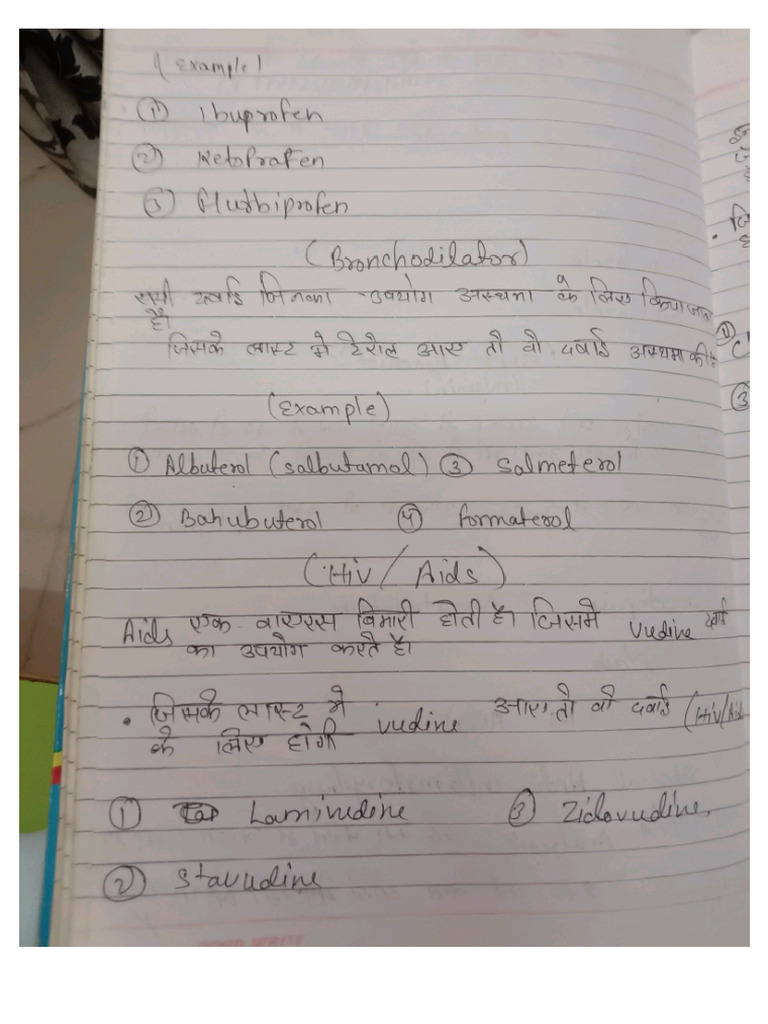 (Example)
① Ibuprofen
② Ketoprofen
③ Flurbiprofen
(Bronchodilator)
एसी दवाई जिनका उपयोग अस्थमा के लिए किया जाता
है।
जिसके लास्ट मे टेरोल आए तो वो दवाई अस्थमा की है
(Example)
① Albuterol (salbutamol) ③ Salmeterol
② Bahubuterol ④ formaterol
(Hiv / Aids)
Aids एक वाएरस बिमारी होती है। जिसमे vudine दवाई
का उपयोग करते है।
• जिसके लास्ट मे vudine आए तो वो दवाई (Hiv/Aid
के लिए होगी
① Lamivudine ③ Zidovudine,
② Stavudine